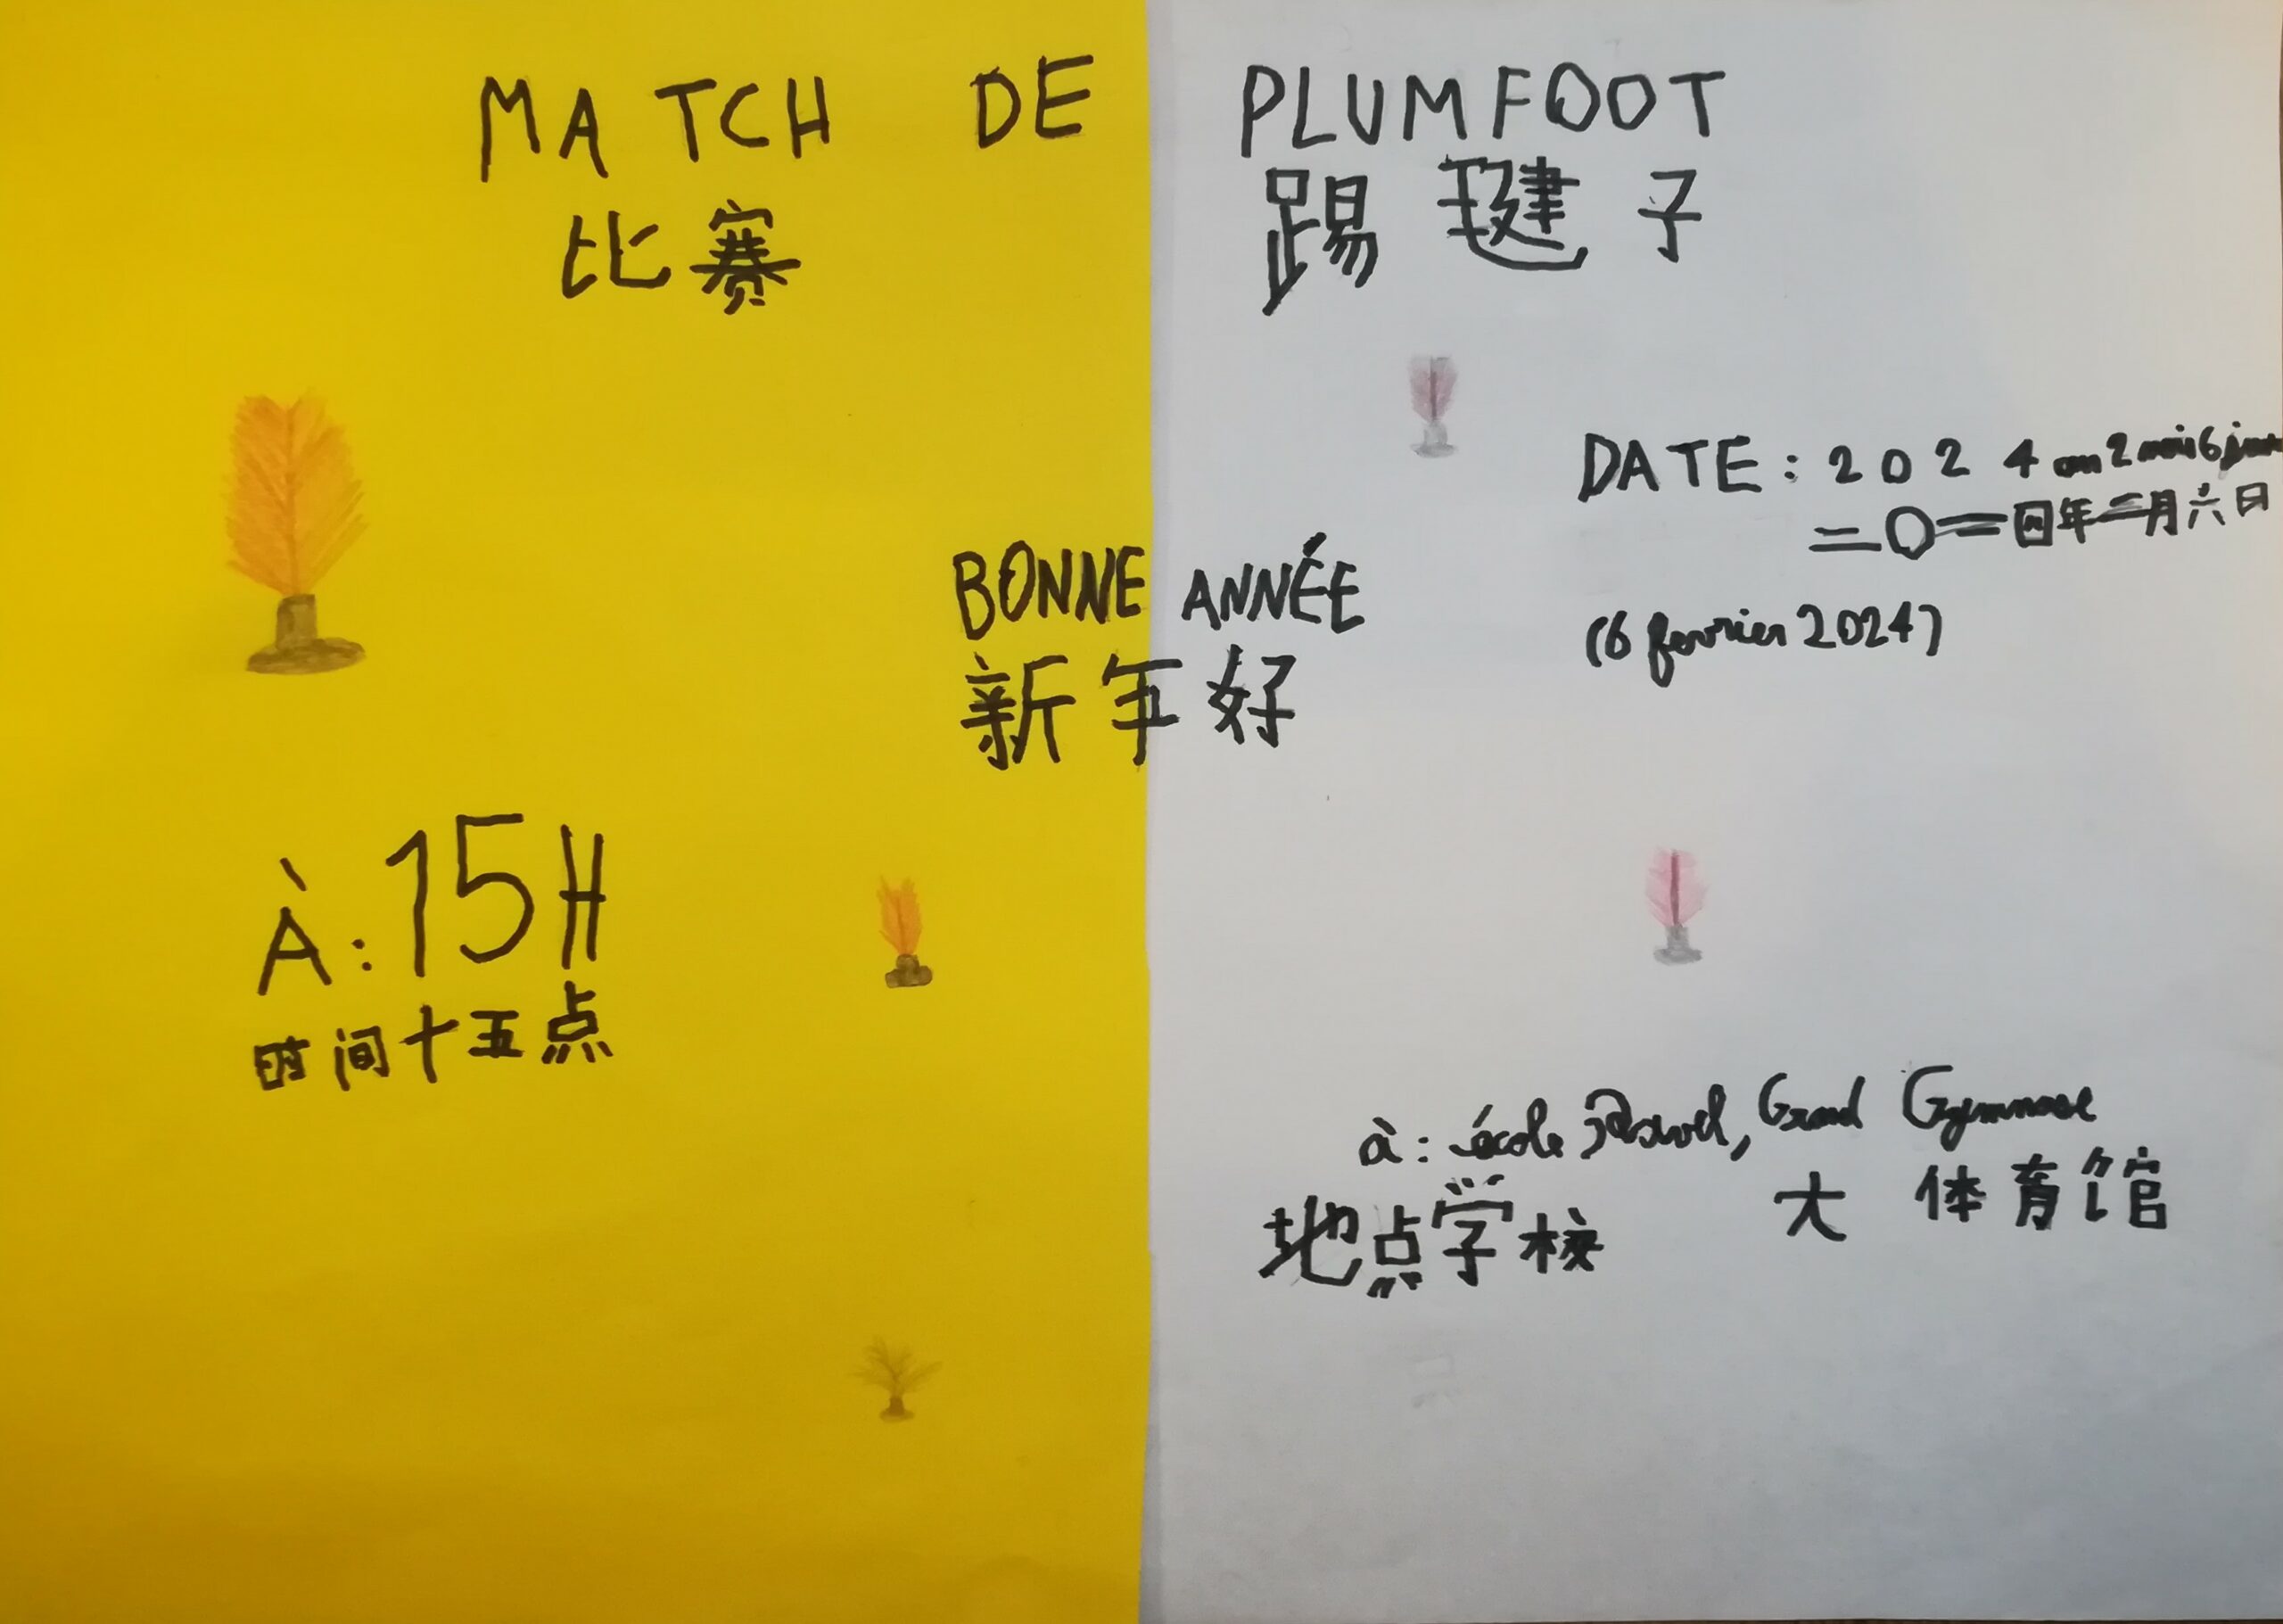 MATCH DE PLUMFOOT
比赛 踢毽子
DATE: 2024 an 2 mois 6 jour
二〇二四年二月六日
(6 fevrier 2024)
BONNE ANNÉE
新年好
À: 15H
时间十五点
à: école Ravel, Grand Gymnase
地点学校 大体育馆